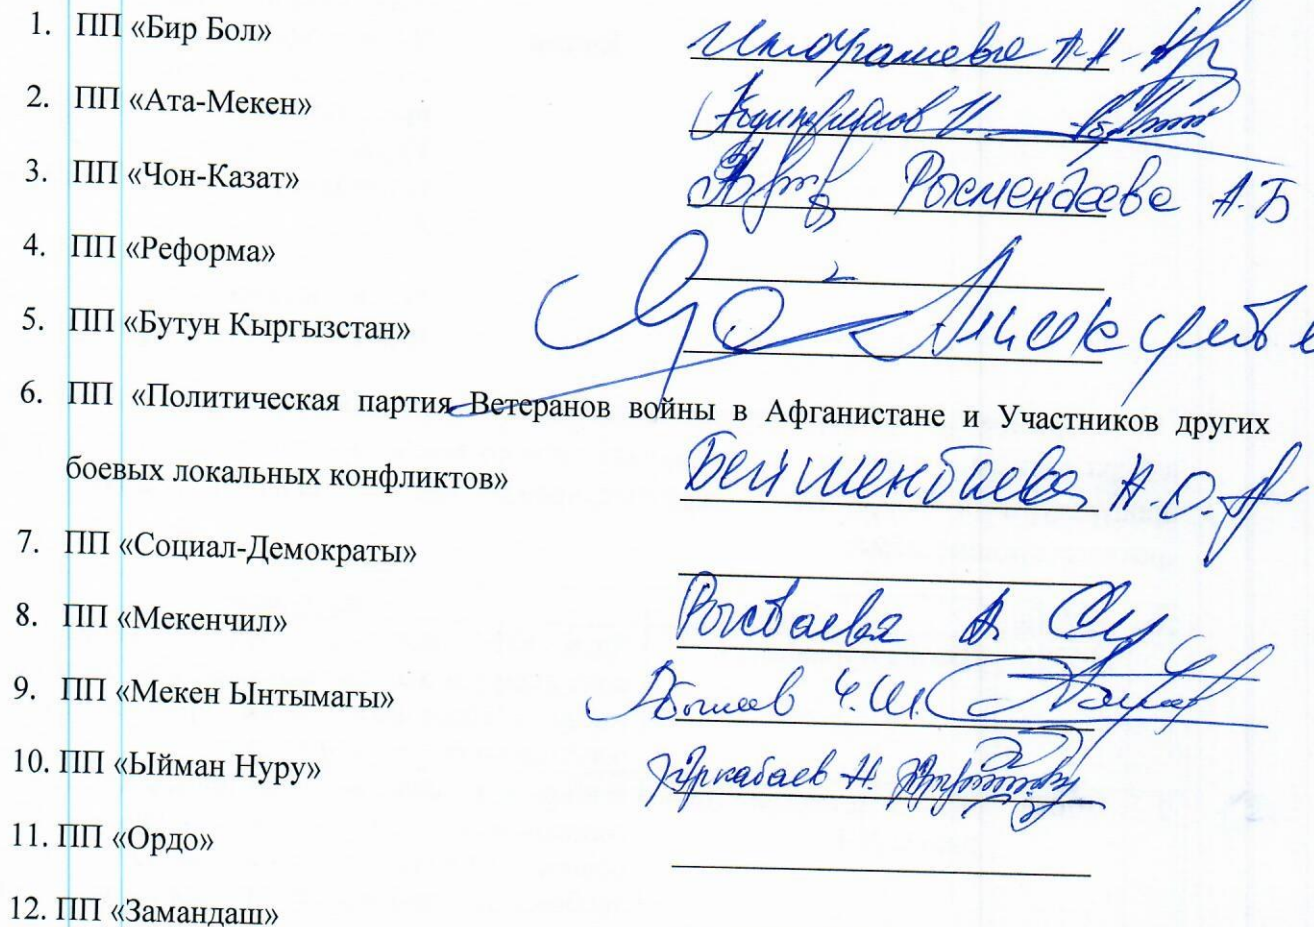 1. ПП «Бир Бол»
2. ПП «Ата-Мекен»
3. ПП «Чон-Казат» Рысменбеева А.Б
4. ПП «Реформа»
5. ПП «Бутун Кыргызстан»
6. ПП «Политическая партия Ветеранов войны в Афганистане и Участников других
боевых локальных конфликтов» Бейшенбаева А.О.
7. ПП «Социал-Демократы»
8. ПП «Мекенчил» Рысбаева А
9. ПП «Мекен Ынтымагы» Ч.Ш.
10. ПП «Ыйман Нуру» Н.
11. ПП «Ордо»
12. ПП «Замандаш»